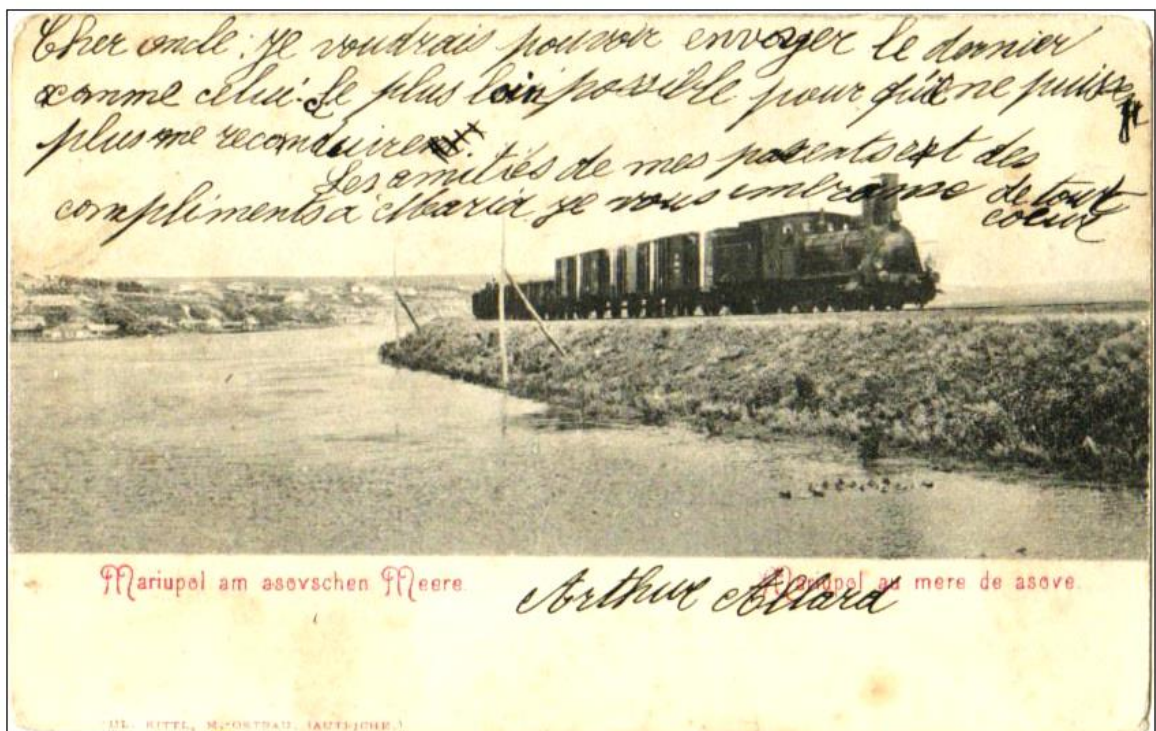 Cher oncle: je voudrais pouvoir envoyer le dernier
comme celui-le plus loin possible pour qu'il ne puisse
plus me reconduire.
Les amitiés de mes parents et des
compliments à Maria je vous embrasse de tout
coeur
Mariupol am asovschen Meere.
Mariupol au mere de asove.
Arthur Allard
JUL. KITTL, M.-OSTRAU. (AUTRICHE.)